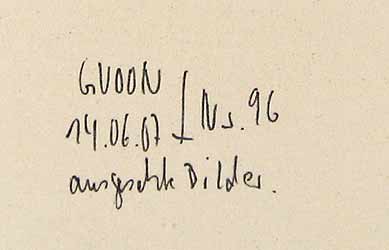 GVOON
14.06.07 Nr. 96
ausgesetzte Bilder.